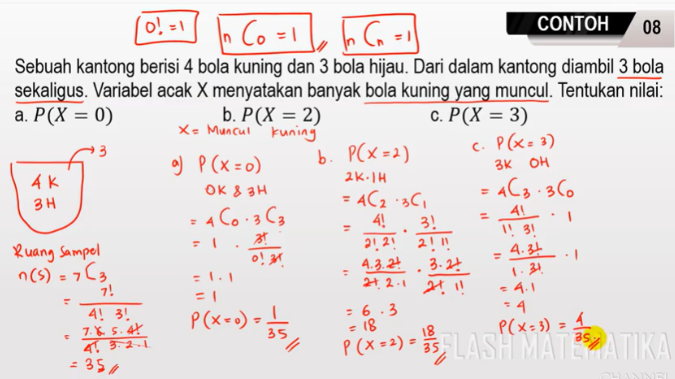 0! = 1
nC0 = 1
nCn = 1
CONTOH 08
Sebuah kantong berisi 4 bola kuning dan 3 bola hijau. Dari dalam kantong diambil 3 bola
sekaligus. Variabel acak X menyatakan banyak bola kuning yang muncul. Tentukan nilai:
a. P(X = 0) b. P(X = 2) c. P(X = 3)
X = Muncul kuning
3
4 K
3 H
Ruang Sampel
n(S) = 7C3
= 7! / 4! 3!
= 7.6.5.4! / 4! 3.2.1
= 35
a) P(X=0)
0K & 3H
= 4C0 . 3C3
= 1 . 3! / 0! 3!
= 1.1
= 1
P(X=0) = 1/35
b. P(X=2)
2K.1H
= 4C2 . 3C1
= 4! / 2! 2! . 3! / 2! 1!
= 4.3.2! / 2! 2.1 . 3.2! / 2! 1!
= 6 . 3
= 18
P(X=2) = 18/35
c. P(X=3)
3K 0H
= 4C3 . 3C0
= 4! / 1! 3! . 1
= 4.3! / 1.3! . 1
= 4.1
= 4
P(X=3) = 4/35
FLASH MATEMATIKA
CHANNEL